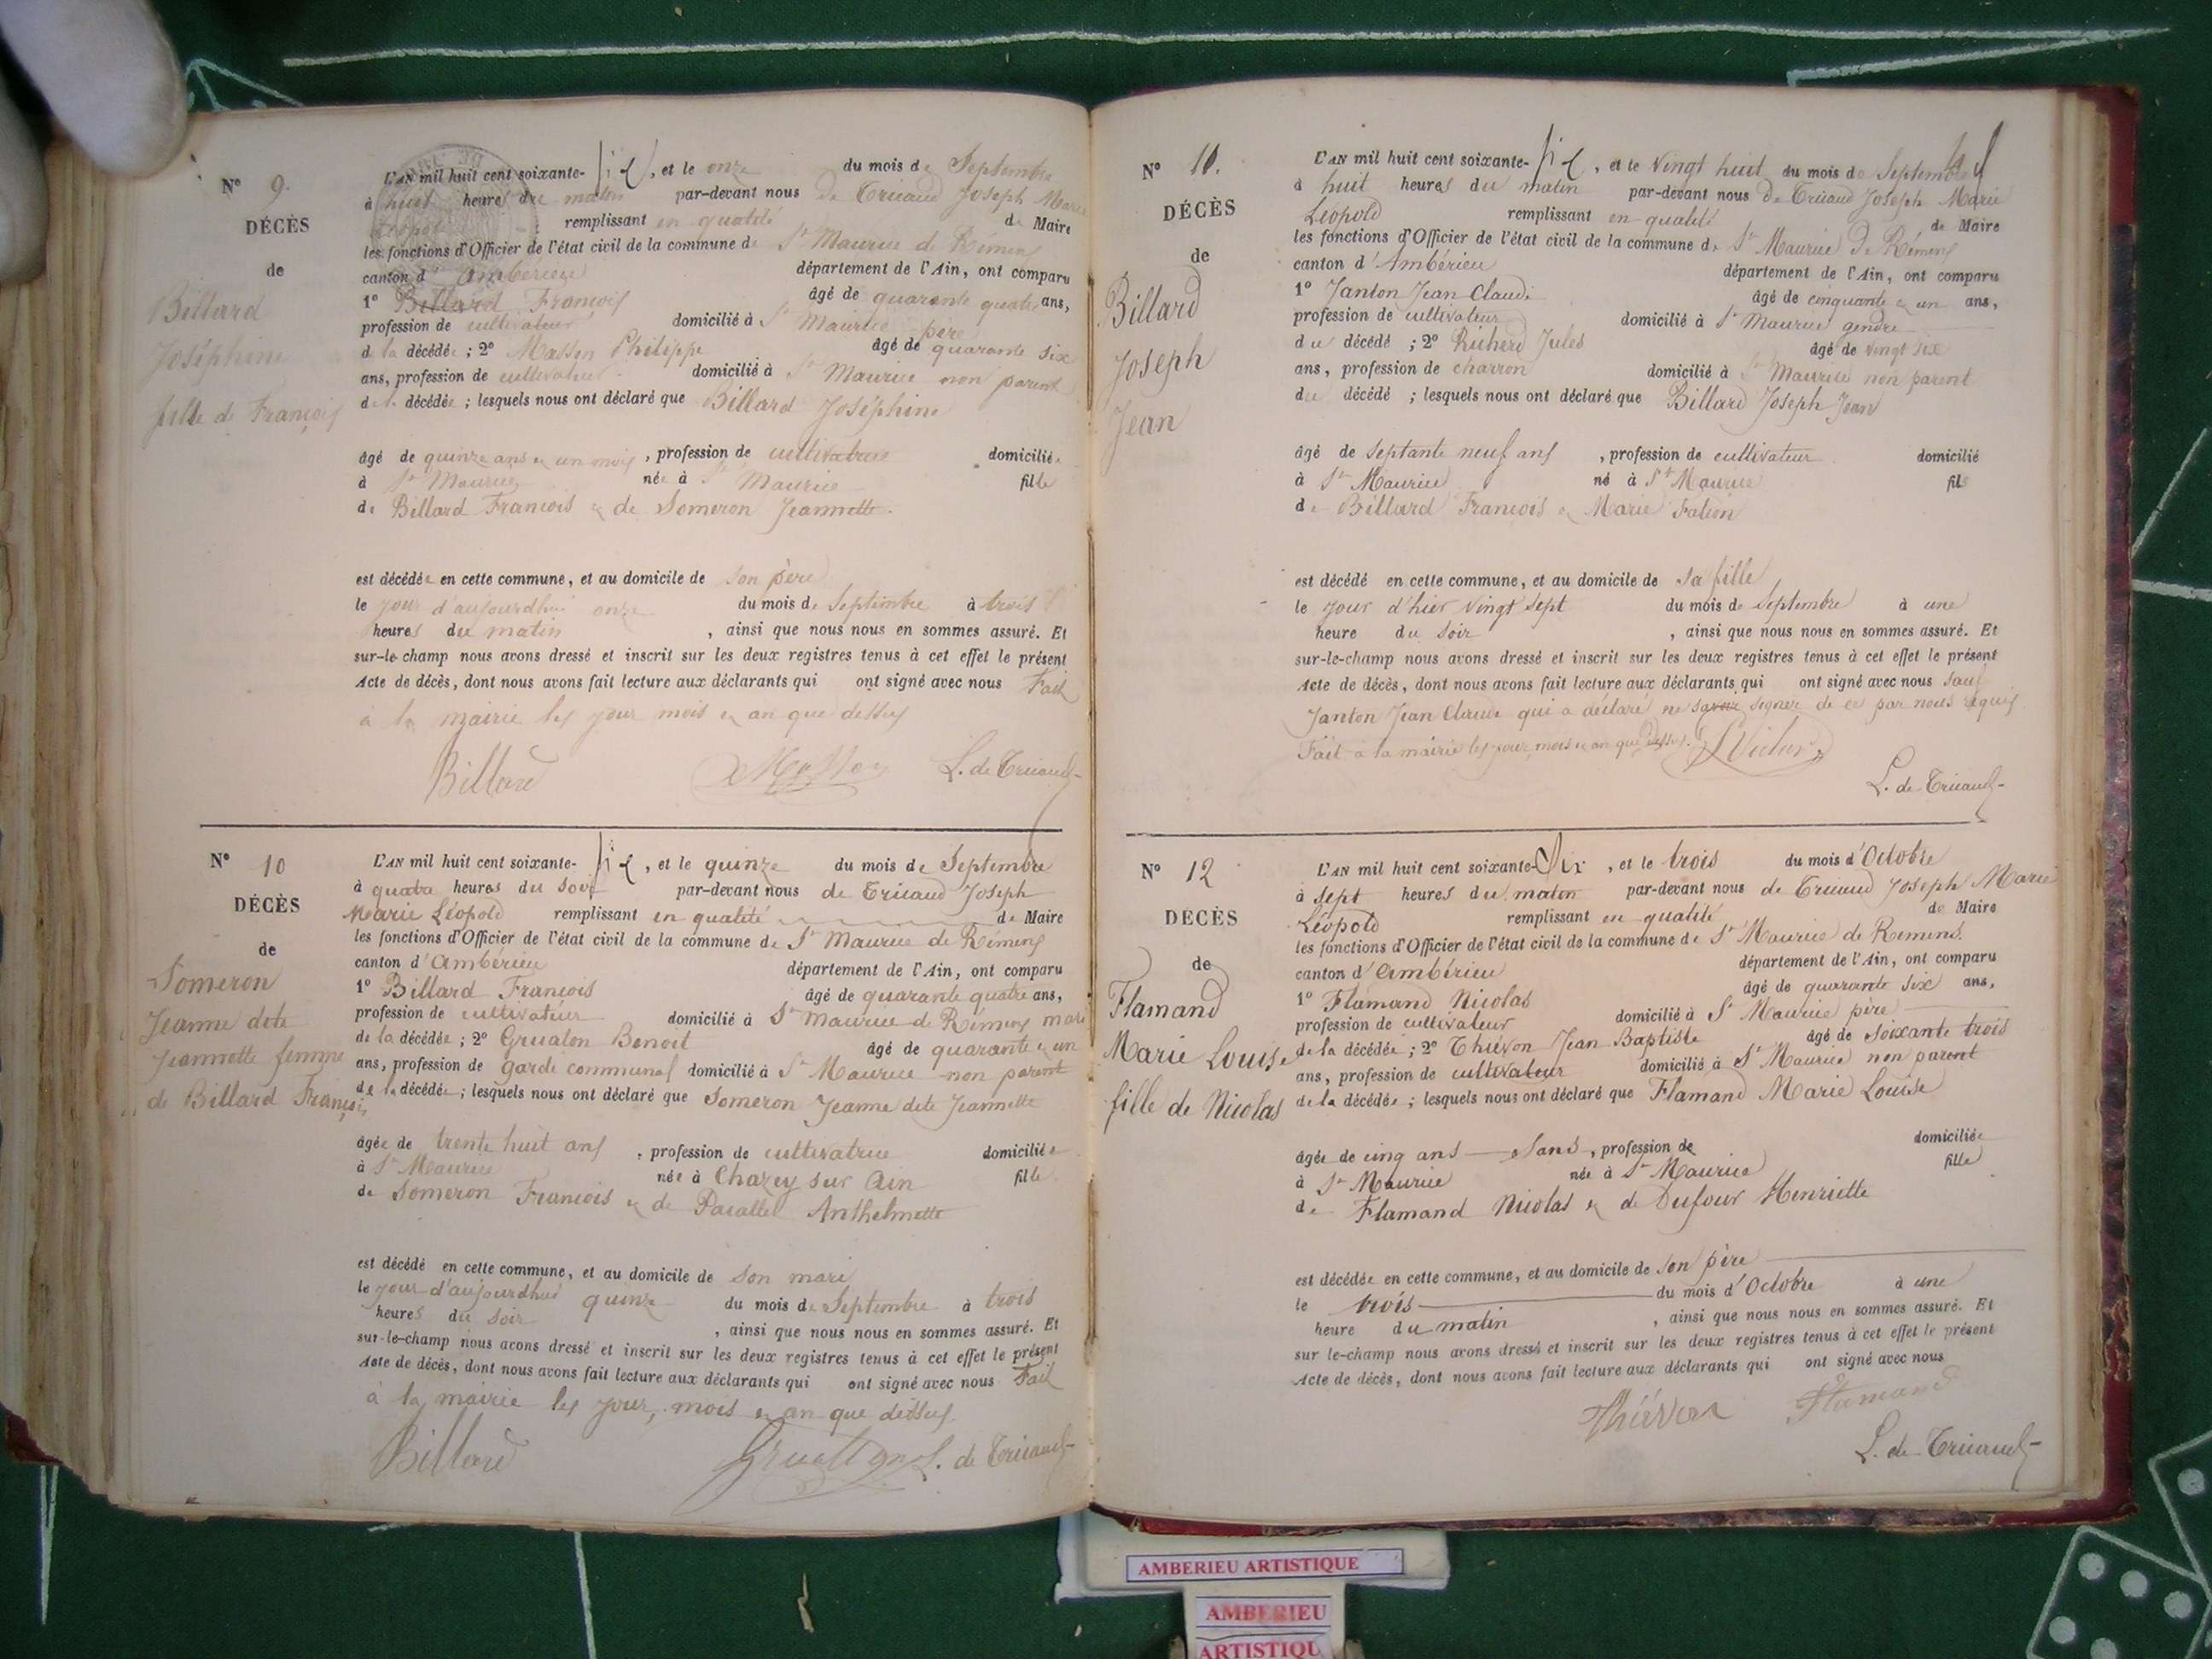 N° 9.
DÉCÈS
de
Billard
Joséphine
fille de François
L'AN mil huit cent soixante-dix, et le onze du mois de Septembre
à huit heures du matin par-devant nous de Tricaud Joseph Marie
Léopold remplissant en qualité de Maire
les fonctions d'Officier de l'état civil de la commune de St Maurice de Rémens
canton d'Ambérieu département de l'Ain, ont comparu
1° Billard François âgé de quarante quatre ans,
profession de cultivateur domicilié à St Maurice père
de la décédée ; 2° Masson Philippe âgé de quarante six
ans, profession de cultivateur domicilié à St Maurice non parent
de la décédée ; lesquels nous ont déclaré que Billard Joséphine
âgé de quinze ans & un mois, profession de cultivatrice domiciliée
à St Maurice née à St Maurice fille
de Billard François & de Someron Jeannette.
est décédée en cette commune, et au domicile de son père
le jour d'aujourdhui onze du mois de Septembre à trois
heures du matin, ainsi que nous nous en sommes assuré. Et
sur-le-champ nous avons dressé et inscrit sur les deux registres tenus à cet effet le présent
Acte de décès, dont nous avons fait lecture aux déclarants qui ont signé avec nous Fait
à la mairie les jour mois & an que dessus
Billard Masson L. de Tricaud
N° 10
DÉCÈS
de
Someron
Jeanne dite
Jeannette femme
de Billard François
L'AN mil huit cent soixante-dix, et le quinze du mois de Septembre
à quatre heures du soir par-devant nous de Tricaud Joseph
Marie Léopold remplissant en qualité de Maire
les fonctions d'Officier de l'état civil de la commune de St Maurice de Rémens
canton d'Ambérieu département de l'Ain, ont comparu
1° Billard François âgé de quarante quatre ans,
profession de cultivateur domicilié à St Maurice de Rémens mari
de la décédée ; 2° Gruaton Benoit âgé de quarante & un
ans, profession de garde communal domicilié à St Maurice non parent
de la décédée ; lesquels nous ont déclaré que Someron Jeanne dite Jeannette
âgée de trente huit ans, profession de cultivatrice domiciliée
à St Maurice née à Chazey sur Ain fille
de Someron François & de Anthelmette
est décédé en cette commune, et au domicile de son mari
le jour d'aujourdhui quinze du mois de Septembre à trois
heures du soir, ainsi que nous nous en sommes assuré. Et
sur-le-champ nous avons dressé et inscrit sur les deux registres tenus à cet effet le présent
Acte de décès, dont nous avons fait lecture aux déclarants qui ont signé avec nous Fait
à la mairie les jour, mois & an que dessus.
Billard L. de Tricaud
N° 11.
DÉCÈS
de
Billard
Joseph
Jean
L'AN mil huit cent soixante-dix, et le vingt huit du mois de Septembre
à huit heures du matin par-devant nous De Tricaud Joseph Marie
Léopold remplissant en qualité de Maire
les fonctions d'Officier de l'état civil de la commune de St Maurice De Rémens
canton d'Ambérieu département de l'Ain, ont comparu
1° Janton Jean Claude âgé de cinquante & un ans,
profession de cultivateur domicilié à St Maurice gendre
du décédé ; 2° Richerd Jules âgé de vingt six
ans, profession de charron domicilié à St Maurice non parent
du décédé ; lesquels nous ont déclaré que Billard Joseph Jean
âgé de septante neuf ans, profession de cultivateur domicilié
à St Maurice né à St Maurice fils
de Billard François & Marie Falion
est décédé en cette commune, et au domicile de sa fille
le jour d'hier vingt sept du mois de Septembre à une
heure du soir, ainsi que nous nous en sommes assuré. Et
sur-le-champ nous avons dressé et inscrit sur les deux registres tenus à cet effet le présent
Acte de décès, dont nous avons fait lecture aux déclarants qui ont signé avec nous sauf
Janton Jean Claude qui a déclaré ne savoir signer de ce par nous requis
Fait à la mairie les jour, mois & an que dessus.
L. de Tricaud
N° 12
DÉCÈS
de
Flamand
Marie Louise
fille de Nicolas
L'AN mil huit cent soixante-Dix, et le trois du mois d'Octobre
à sept heures du matin par-devant nous de Tricaud Joseph Marie
Léopold remplissant en qualité de Maire
les fonctions d'Officier de l'état civil de la commune de St Maurice de Remens.
canton d'Ambérieu département de l'Ain, ont comparu
1° Flamand Nicolas âgé de quarante six ans,
profession de cultivateur domicilié à St Maurice père
de la décédée ; 2° Thiévon Jean Baptiste âgé de soixante trois
ans, profession de cultivateur domicilié à St Maurice non parent
de la décédée ; lesquels nous ont déclaré que Flamand Marie Louise
âgée de cinq ans sans, profession de domiciliée
à St Maurice née à St Maurice fille
de Flamand Nicolas & de Dufour Henriette
est décédée en cette commune, et au domicile de son père
le trois du mois d'Octobre à une
heure du matin, ainsi que nous nous en sommes assuré. Et
sur le-champ nous avons dressé et inscrit sur les deux registres tenus à cet effet le présent
Acte de décès, dont nous avons fait lecture aux déclarants qui ont signé avec nous
Thiévon Flamand
L. de Tricaud
AMBERIEU ARTISTIQUE
AMBERIEU
ARTISTIQU